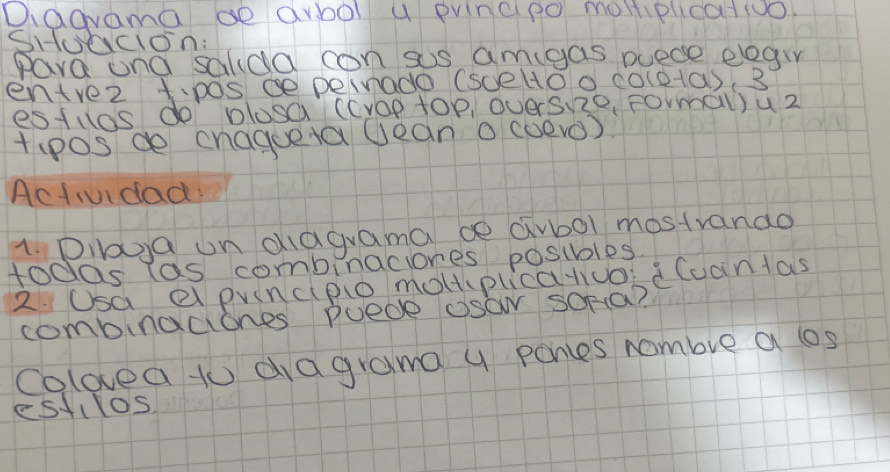 Diagrama de arbol y principo moltiplicativo.
Situación:
para una salida con sus amigas puede elegir
entre 2 tipos de peinado (suelto o coletas), 3
estilos de blusa (crop top, oversize, Formal) y 2
tipos de chaqueta (Jean o cuero)
Actividad:
1. Dibuja un diagrama de árbol mostrando
todas las combinaciones posibles.
2. Usa el principio moltiplicativo: ¿Cuantas
combinaciones puede usar sofia?
Colorea tu diagrama y pones nombre a los
estilos.